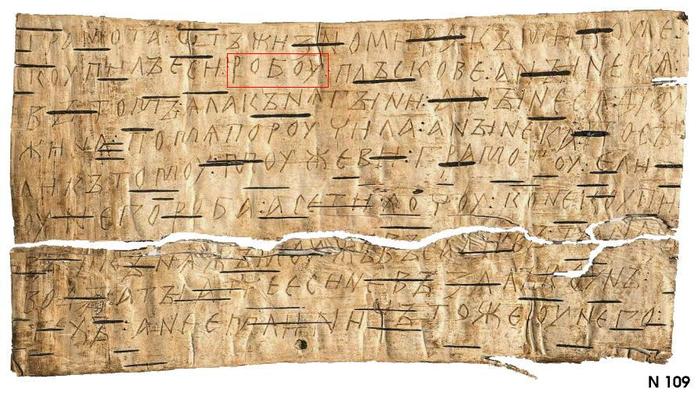 ГРАМОТА : ѠТЪ ЖИЗНОМИРА : КЪ МИКОУЛЕ :
КОУПИЛЪ ЕСИ : РОБОУ : ПЛЪСКОВЕ : А НЫНЕ МѦ :
ВЪ ТОМЪ : ѦЛА КЪНѦГЫНИ : А НЫНЕ СѦ ДРОУ
ЖИНА : ПО МѦ ПОРОУЧИЛА : А НЫНЕ КА : ПОСЪ
ЛИ КЪ ТОМОУ : МОУЖЕВИ : ГРАМОТОУ : ЕЛИ
ОУ НЕГО РОБА : А СЕ ТИ ХОЧОУ : КОНЕ КОУПИ
ВЪ : И КЪНѦЖЪ МОУЖЪ ВЪСАДИВЪ : ТА НА СЪ
ВОДЫ : А ТЫ АТЧЕ ЕСИ НЕ ВЪЗАЛЪ КОУНЪ :
ТЕХЪ : А НЕ ЕМЛИ : НИЧЪТО ЖЕ ОУ НЕГО :
N 109